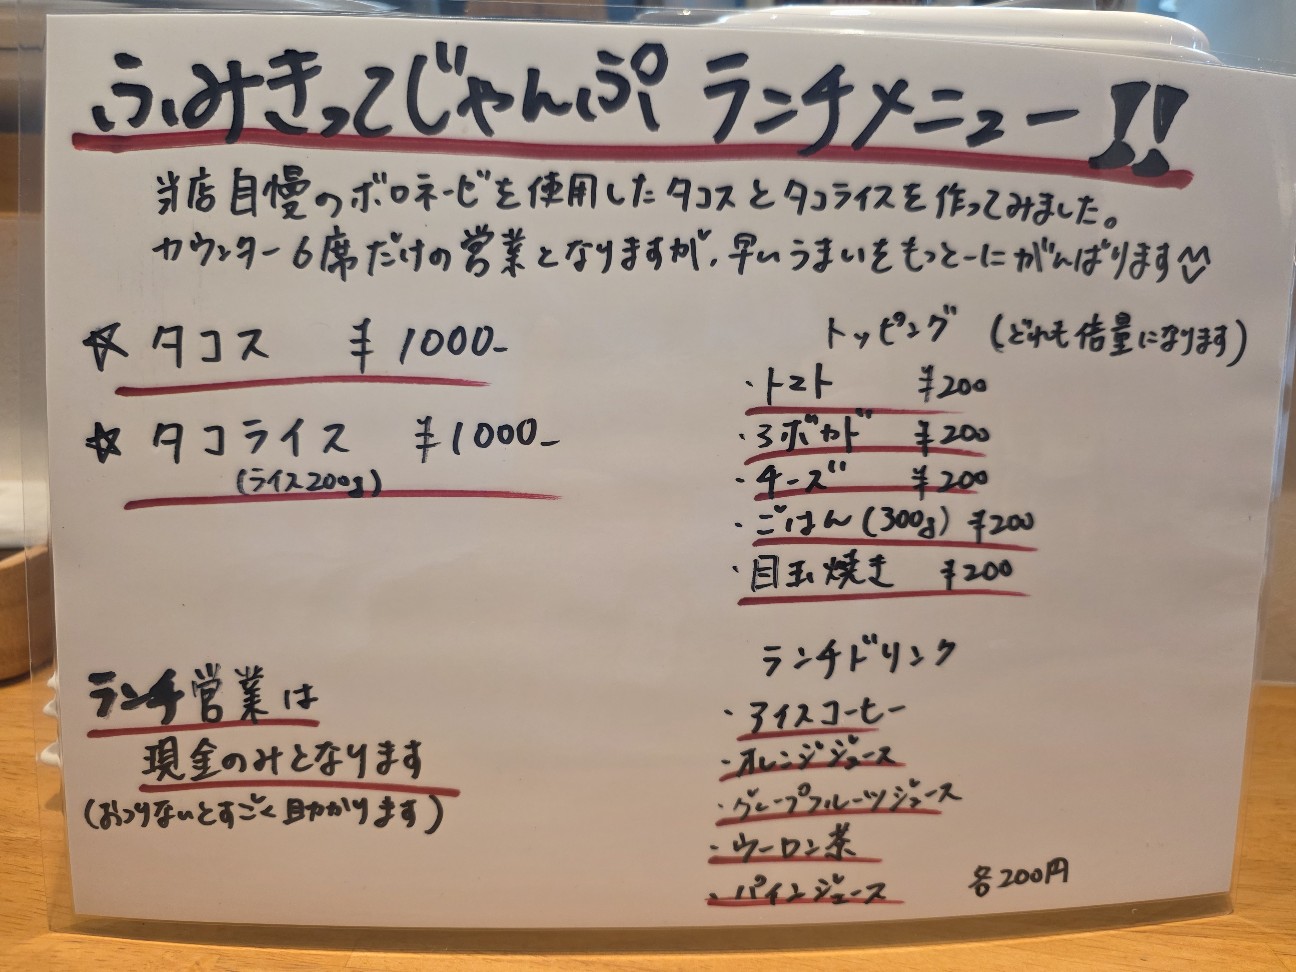 ふみきってじゃんぷ ランチメニュー!!
当店自慢のボロネーゼを使用したタコスとタコライスを作ってみました。
カウンター6席だけの営業となりますが、早いうまいをもっとーにがんばります
☆ タコス ¥1000-
☆ タコライス ¥1000-
(ライス200g)
トッピング (どれも倍量になります)
・トマト ¥200
・アボカド ¥200
・チーズ ¥200
・ごはん(300g) ¥200
・目玉焼き ¥200
ランチドリンク
・アイスコーヒー
・オレンジジュース
・グレープフルーツジュース
・ウーロン茶
・パインジュース
各200円
ランチ営業は
現金のみとなります
(おつりないとすごく助かります)